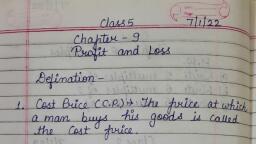 Class 5
7/1/22
Chapter - 9
Profit and Loss
Defination -
1. Cost Price (C.P.) → The price at which
a man buys his goods is called
the Cost price.